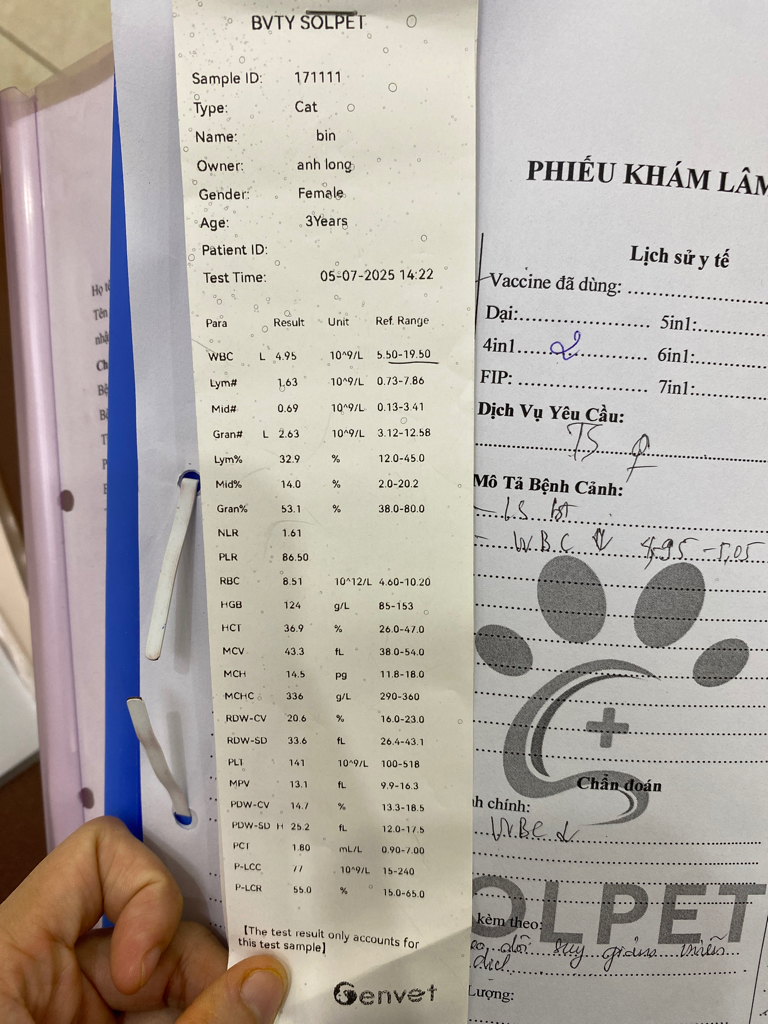 BVTY SOLPET
Sample ID: 171111
Type: Cat
Name: bin
Owner: anh long
Gender: Female
Age: 3Years
Patient ID:
Test Time: 05-07-2025 14:22
Para Result Unit Ref. Range
WBC L 4.95 10^9/L 5.50-19.50
Lym# 1.63 10^9/L 0.73-7.86
Mid# 0.69 10^9/L 0.13-3.41
Gran# L 2.63 10^9/L 3.12-12.58
Lym% 32.9 % 12.0-45.0
Mid% 14.0 % 2.0-20.2
Gran% 53.1 % 38.0-80.0
NLR 1.61
PLR 86.50
RBC 8.51 10^12/L 4.60-10.20
HGB 124 g/L 85-153
HCT 36.9 % 26.0-47.0
MCV 43.3 fL 38.0-54.0
MCH 14.5 pg 11.8-18.0
MCHC 336 g/L 290-360
RDW-CV 20.6 % 16.0-23.0
RDW-SD 33.6 fL 26.4-43.1
PLT 141 10^9/L 100-518
MPV 13.1 fL 9.9-16.3
PDW-CV 14.7 % 13.3-18.5
PDW-SD H 25.2 fL 12.0-17.5
PCT 1.80 mL/L 0.90-7.00
P-LCC 77 10^9/L 15-240
P-LCR 55.0 % 15.0-65.0
【The test result only accounts for
this test sample】
Genvet
PHIẾU KHÁM LÂM
Lịch sử y tế
Vaccine đã dùng:
Dại: 5in1:
4in1 2 6in1:
FIP: 7in1:
Dịch Vụ Yêu Cầu:
TS ♀
Mô Tả Bệnh Cảnh:
- LS bt
- WBC ↓ 4,95 - 5,05
Chẩn đoán
h chính:
WBC ↓
OLPET
kèm theo:
dõi suy giảm miễn
dịch
Lượng:
Họ t
Tên
nhậ